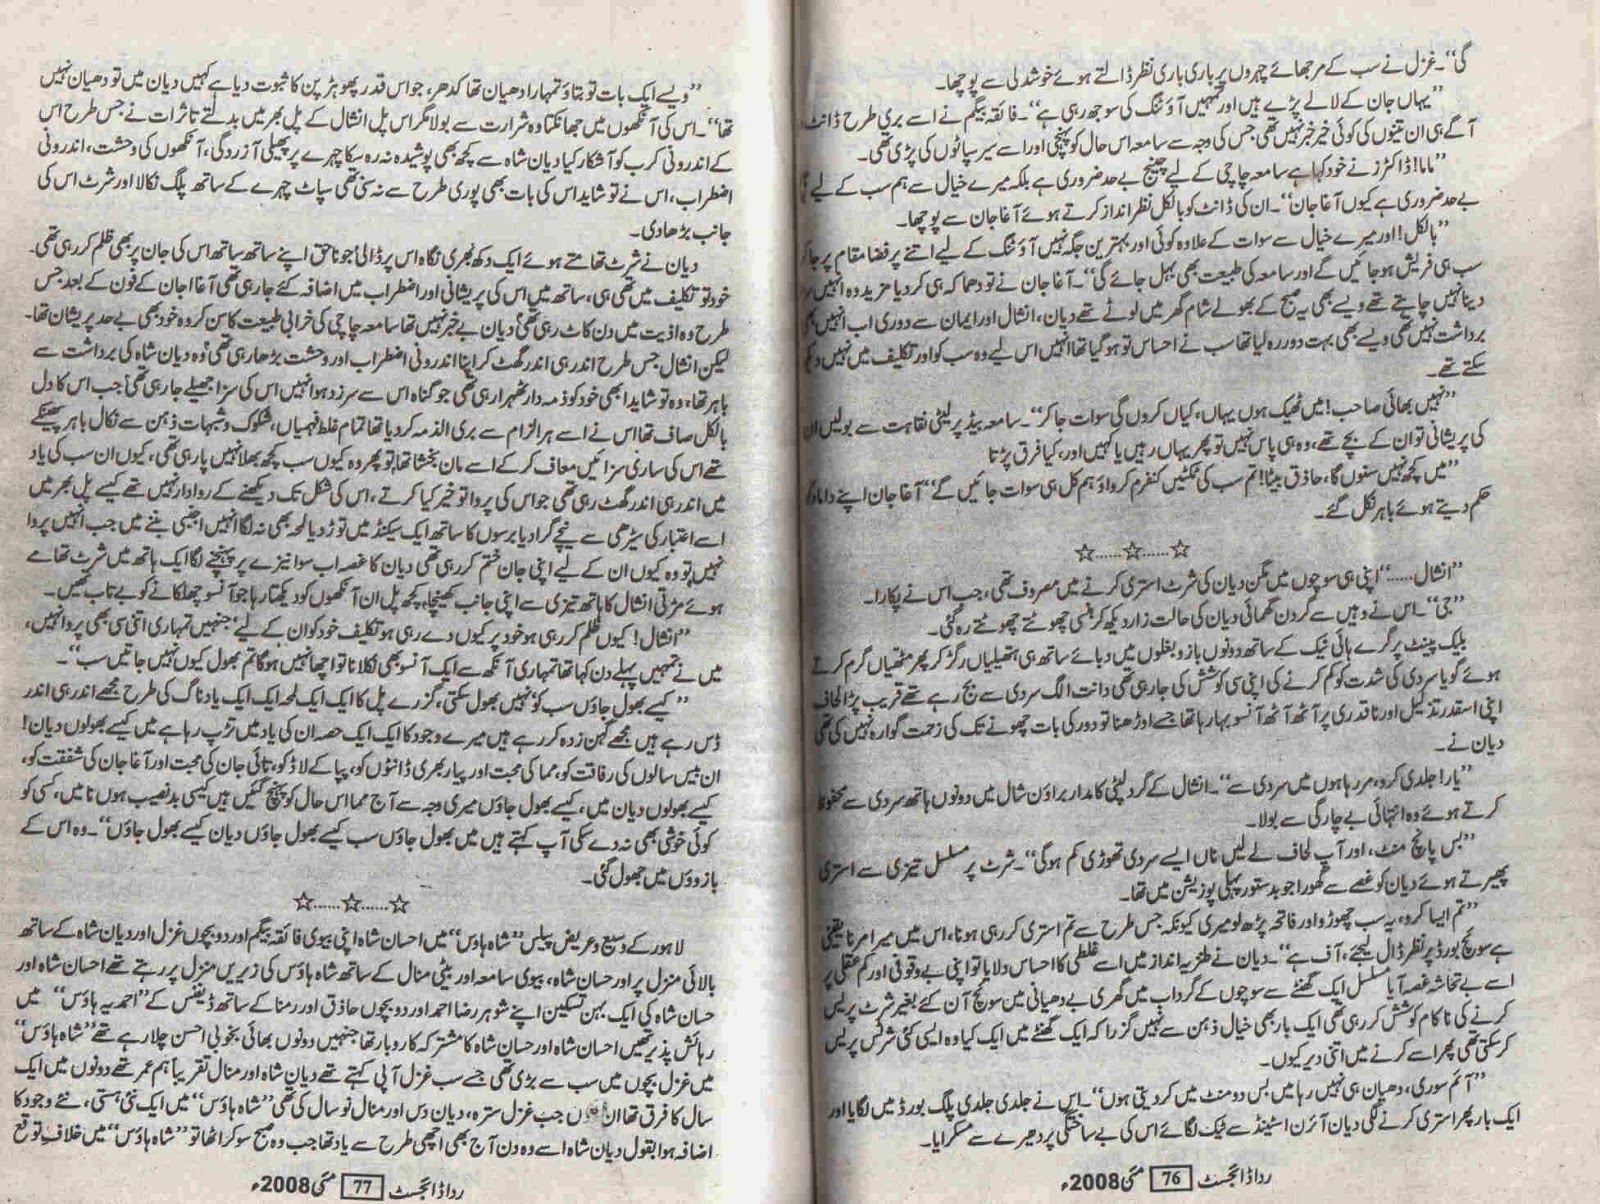 گی‘‘۔ غزل نے سب کے مرجھائے چہروں پر باری باری نظر ڈالتے ہوئے خوشدلی سے پوچھا۔
’’یہاں جان کے لالے پڑے ہیں اور تمہیں آؤٹنگ کی سوجھ رہی ہے‘‘۔ فائقہ بیگم نے اسے بری طرح ڈانٹ
آگے ہی ان تینوں کی کوئی خیر خبر نہیں تھی جس کی وجہ سے سامعہ اس حال کو پہنچی اور اسے سیر سپاٹوں کی پڑی تھی۔
’’ماما! ڈاکٹرز نے خود کہا ہے سامعہ چاچی کے لیے چینج بے حد ضروری ہے بلکہ میرے خیال سے ہم سب کے لیے
بے حد ضروری ہے کیوں آغا جان‘‘۔ ان کی ڈانٹ کو بالکل نظر انداز کرتے ہوئے آغا جان سے پوچھا۔
’’بالکل! اور میرے خیال سے سوات کے علاوہ کوئی اور بہترین جگہ نہیں آؤٹنگ کے لیے اتنے پر فضا مقام پر جا کر
سب ہی فریش ہو جائیں گے اور سامعہ کی طبیعت بھی بہل جائے گی‘‘۔ آغا جان نے تو دھماکہ ہی کر دیا مزید وہ انہیں
دینا نہیں چاہتے تھے ویسے بھی یہ صبح کے بھولے شام گھر میں لوٹے تھے دیان، انشال اور ایمان سے دوری اب انہیں
برداشت نہیں تھی ویسے بھی بہت دور رہ لیا تھا سب نے احساس تو ہو گیا تھا انہیں اس لیے وہ سب کو اور تکلیف میں نہیں دیکھ
سکتے تھے۔
’’نہیں بھائی صاحب! میں ٹھیک ہوں یہاں، کیاں کروں گی سوات جا کر‘‘۔ سامعہ بیڈ پر لیٹی نقاہت سے بولیں ان
کی پریشانی تو ان کے بچے تھے، وہ ہی پاس نہیں تو پھر یہاں رہیں یا کہیں اور، کیا فرق پڑتا
’’میں کچھ نہیں سنوں گا، حاذق بیٹا! تم سب کی ٹکٹیں کنفرم کرواؤ ہم کل ہی سوات جائیں گے‘‘ آغا جان اپنے داماد کو
حکم دیتے ہوئے باہر نکل گئے۔
☆......☆......☆
’’انشال......‘‘ اپنی ہی سوچوں میں مگن دیان کی شرٹ استری کرنے میں مصروف تھی، جب اس نے پکارا۔
’’جی‘‘۔ اس نے وہیں سے گردن گھمائی دیان کی حالت زار دیکھ کر ہنسی چھوٹتے چھوٹتے رہ گئی۔
بلیک پینٹ پر گرے ہائی نیک کے ساتھ دونوں بازو بغلوں میں دبائے ساتھ ہی ہتھیلیاں رگڑ کر پھر مٹھیاں گرم کرتے
ہوئے گویا سردی کی شدت کو کم کرنے کی اپنی سی کوشش کی جا رہی تھی دانت الگ سردی سے بج رہے تھے قریب پڑا لحاف
اپنی اسقدر تذلیل اور ناقدری پر آٹھ آٹھ آنسو بہا رہا تھا جسے اوڑھنا تو دور کی بات چھونے تک کی زحمت گوارہ نہیں کی تھی
دیان نے۔
’’یار! جلدی کرو، مر رہا ہوں میں سردی سے‘‘۔ انشال کے گرد لپٹی کامدار براؤن شال میں دونوں ہاتھ سردی سے محفوظ
کرتے ہوئے وہ انتہائی بے چارگی سے بولا۔
’’بس پانچ منٹ، اور آپ لحاف لے لیں ناں ایسے سردی تھوڑی کم ہوگی‘‘۔ شرٹ پر مسلسل تیزی سے استری
پھیرتے ہوئے دیان کو غصے سے گھورا جو بدستور پہلی پوزیشن میں تھا۔
’’تم ایسا کرو، یہ سب چھوڑو اور فاتحہ پڑھ لو میری کیونکہ جس طرح سے تم استری کر رہی ہو نا، اس میں میرا مرنا یقینی
ہے سوئچ بورڈ پر نظر ڈال لیجئے، آف ہے‘‘۔ دیان نے طنزیہ انداز میں اسے غلطی کا احساس دلایا تو اپنی بے وقوفی اور کم عقلی پر
اسے بے تحاشہ غصہ آیا مسلسل ایک گھنٹے سے سوچوں کے گرداب میں گھری بے دھیانی میں سوئچ آن کئے بغیر شرٹ پریس
کرنے کی ناکام کوشش کر رہی تھی ایک بار بھی خیال ذہن سے نہیں گزرا کہ ایک گھنٹے میں ایک کیا وہ ایسی کئی شرٹس پریس
کر سکتی تھی پھر اسے کرنے میں اتنی دیر کیوں۔
’’آئم سوری، دھیان ہی نہیں رہا میں بس دو منٹ میں کر دیتی ہوں‘‘۔ اس نے جلدی جلدی پلگ بورڈ میں لگایا اور
ایک بار پھر استری کرنے لگی دیان آئرن اسٹینڈ سے ٹیک لگائے اس کی بے ساختگی پر دھیرے سے مسکرایا۔
ردا ڈائجسٹ 76 مئی 2008ء
’’ویسے ایک بات تو بتاؤ تمہارا دھیان تھا کدھر، جو اس قدر پھوہڑ پن کا ثبوت دیا ہے کہیں دیان میں تو دھیان نہیں
تھا‘‘۔ اس کی آنکھوں میں جھانکتا وہ شرارت سے بولا مگر اس پل انشال کے پل بھر میں بدلتے تاثرات نے جس طرح اس
کے اندرونی کرب کو آشکار کیا دیان شاہ سے کچھ بھی پوشیدہ نہ رہ سکا چہرے پر پھیلی آزردگی، آنکھوں کی وحشت، اندرونی
اضطراب، اس نے تو شاید اس کی بات بھی پوری طرح سے نہ سنی تھی سپاٹ چہرے کے ساتھ پلگ نکالا اور شرٹ اس کی
جانب بڑھا دی۔
دیان نے شرٹ تھامتے ہوئے ایک دکھ بھری نگاہ اس پر ڈالی! جو ناحق اپنے ساتھ ساتھ اس کی جان پر بھی ظلم کر رہی تھی۔
خود تو تکلیف میں تھی ہی، ساتھ میں اس کی پریشانی اور اضطراب میں اضافہ کئے جا رہی تھی آغا جان کے فون کے بعد جس
طرح وہ اذیت میں دن کاٹ رہی تھی؟ دیان بے خبر نہیں تھا سامعہ چاچی کی خرابی طبیعت کا سن کر وہ خود بھی بے حد پریشان تھا۔
لیکن انشال جس طرح اندر ہی اندر گھٹ کر اپنا اندرونی اضطراب اور وحشت بڑھا رہی تھی؟ وہ دیان شاہ کی برداشت سے
باہر تھا، وہ تو شاید ابھی خود کو ذمہ دار ٹھہرا رہی تھی جو گناہ اس سے سرزد ہوا نہیں اس کی سزا جھیلے جا رہی تھی! جب اس کا دل
بالکل صاف تھا اس نے اسے ہر الزام سے بری الذمہ کر دیا تھا تمام غلط فہمیاں، شکوک و شبہات ذہن سے نکال باہر پھینکے
تھے اس کی ساری سزائیں معاف کر کے اسے مان بخشا تھا، تو پھر وہ کیوں سب کچھ بھلا نہیں پا رہی تھی، کیوں ان سب کی یاد
میں اندر ہی اندر گھٹ رہی تھی جو اس کی پروا تو خیر کیا کرتے، اس کی شکل تک دیکھنے کے روادار نہیں تھے کیسے پل بھر میں
اسے اعتبار کی سیڑھی سے نیچے گرا دیا برسوں کا ساتھ ایک سیکنڈ میں توڑ دیا لمحہ بھی نہ لگا انہیں اجنبی بننے میں جب انہیں پروا
نہیں تو وہ کیوں ان کے لیے اپنی جان ختم کر رہی تھی دیان کا غصہ اب سوا نیزے پر پہنچنے لگا ایک ہاتھ میں شرٹ تھامے
ہوئے مڑتی انشال کا ہاتھ تیزی سے اپنی جانب کھینچا، کچھ پل ان آنکھوں کو دیکھتا رہا جو آنسو چھلکانے کو بے تاب تھیں۔
’’انشال! کیوں ظلم کر رہی ہو خود پر کیوں دے رہی ہو تکلیف خود کو ان کے لیے؟ جنہیں تمہاری اتنی سی بھی پروا نہیں،
میں نے تمہیں پہلے دن کہا تھا تمہاری آنکھ سے ایک آنسو بھی نکلا نا تو اچھا نہیں ہوگا تم بھول کیوں نہیں جاتیں سب‘‘۔
’’کیسے بھول جاؤں سب کو نہیں بھول سکتی، گزرے پل کا ایک ایک لمحہ ایک ایک یاد ناگ کی طرح مجھے اندر ہی اندر
ڈس رہے ہیں مجھے گہن زدہ کر رہے ہیں میرے وجود کا ایک ایک حصہ ان کی یاد میں تڑپ رہا ہے میں کیسے بھولوں دیان!
ان بیس سالوں کی رفاقت کو، مما کی محبت اور پیار بھری ڈانٹوں کو، پپا کے لاڈ کو، تائی جان کی محبت اور آغا جان کی شفقت کو،
کیسے بھولوں دیان میں، کیسے بھول جاؤں میری وجہ سے آج مما اس حال کو پہنچ گئیں ہیں کیسی بد نصیب ہوں نا میں، کسی کو
کوئی خوشی بھی نہ دے سکی آپ کہتے ہیں میں بھول جاؤں سب کیسے بھول جاؤں دیان کیسے بھول جاؤں‘‘۔ وہ اس کے
بازوؤں میں جھول گئی۔
☆......☆......☆
لاہور کے وسیع و عریض پیلس ’’شاہ ہاؤس‘‘ میں احسان شاہ اپنی بیوی فائقہ بیگم اور دو بچوں غزل اور دیان شاہ کے ساتھ
بالائی منزل پر اور حسان شاہ، بیوی سامعہ اور بیٹی منال کے ساتھ شاہ ہاؤس کی زیریں منزل پر رہتے تھے احسان شاہ اور
حسان شاہ کی ایک بہن تسکین اپنے شوہر رضا احمد اور دو بچوں حاذق اور رمنا کے ساتھ ڈیفنس کے ’’احمدیہ ہاؤس‘‘ میں
رہائش پذیر تھیں احسان شاہ اور حسان شاہ کا مشترکہ کاروبار تھا جنہیں دونوں بھائی بخوبی احسن چلا رہے تھے ’’شاہ ہاؤس‘‘
میں غزل بچوں میں سب سے بڑی تھی جسے سب غزل آپی کہتے تھے دیان شاہ اور منال تقریباً ہم عمر تھے دونوں میں ایک
سال کا فرق تھا ان دنوں جب غزل سترہ، دیان دس اور منال نو سال کی تھی ’’شاہ ہاؤس‘‘ میں ایک نئی ہستی، نئے وجود کا
اضافہ ہوا بقول دیان شاہ اسے وہ دن آج بھی اچھی طرح سے یاد تھا جب وہ صبح سو کر اٹھا تو ’’شاہ ہاؤس‘‘ میں خلاف توقع
ردا ڈائجسٹ 77 مئی 2008ء